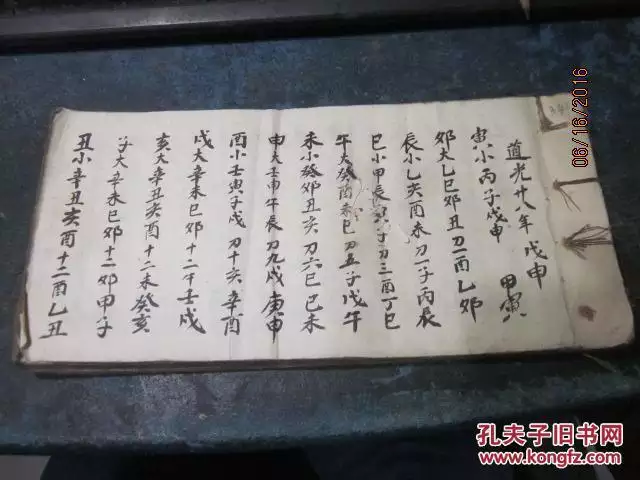 道光廿八年戊申
甲寅
寅小丙子戌申
卯大乙巳卯丑刀一酉乙卯
辰小乙亥酉未刀一子丙辰
巳小甲辰寅子刀三酉丁巳
午大癸酉未巳刀五子戊午
未小癸卯丑亥刀六巳己未
申大壬申午辰刀九戌庚申
酉小壬寅子戌刀十亥辛酉
戌大辛未巳卯十二午壬戌
亥大辛丑亥酉十二未癸亥
子大辛未巳卯十二卯甲子
丑小辛丑亥酉十二酉乙丑
06/16/2016
孔夫子旧书网
www.kongfz.com